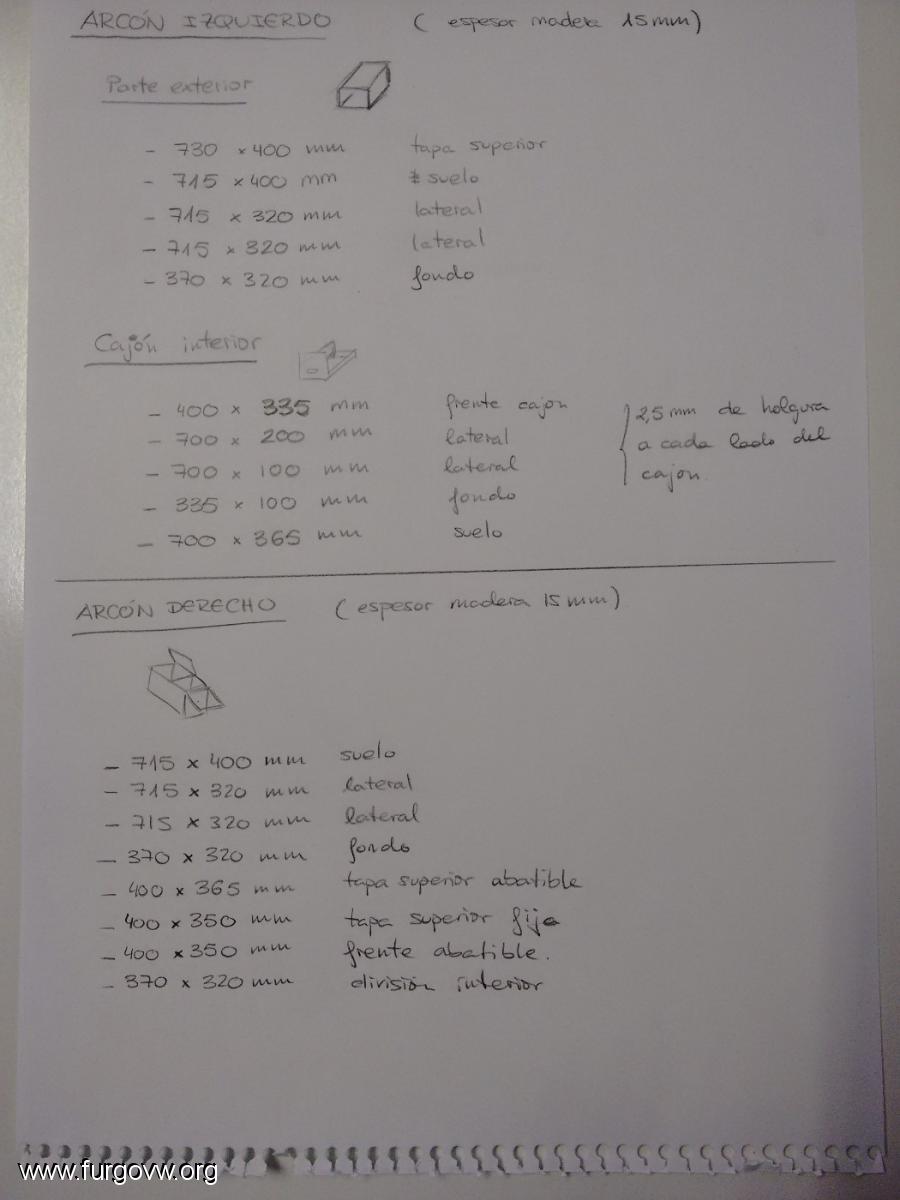 ARCÓN IZQUIERDO (espesor madera 15mm)
Parte exterior
- 730 x 400 mm tapa superior
- 715 x 400 mm suelo
- 715 x 320 mm lateral
- 715 x 320 mm lateral
- 370 x 320 mm fondo
Cajón interior
- 400 x 335 mm frente cajon
- 700 x 200 mm lateral
- 700 x 100 mm lateral
- 335 x 100 mm fondo
- 700 x 365 mm suelo
2,5 mm de holgura
a cada lado del
cajon.
ARCÓN DERECHO (espesor madera 15mm)
- 715 x 400 mm suelo
- 715 x 320 mm lateral
- 715 x 320 mm lateral
- 370 x 320 mm fondo
- 400 x 365 mm tapa superior abatible
- 400 x 350 mm tapa superior fija
- 400 x 350 mm frente abatible.
- 370 x 320 mm división interior
www.furgovw.org